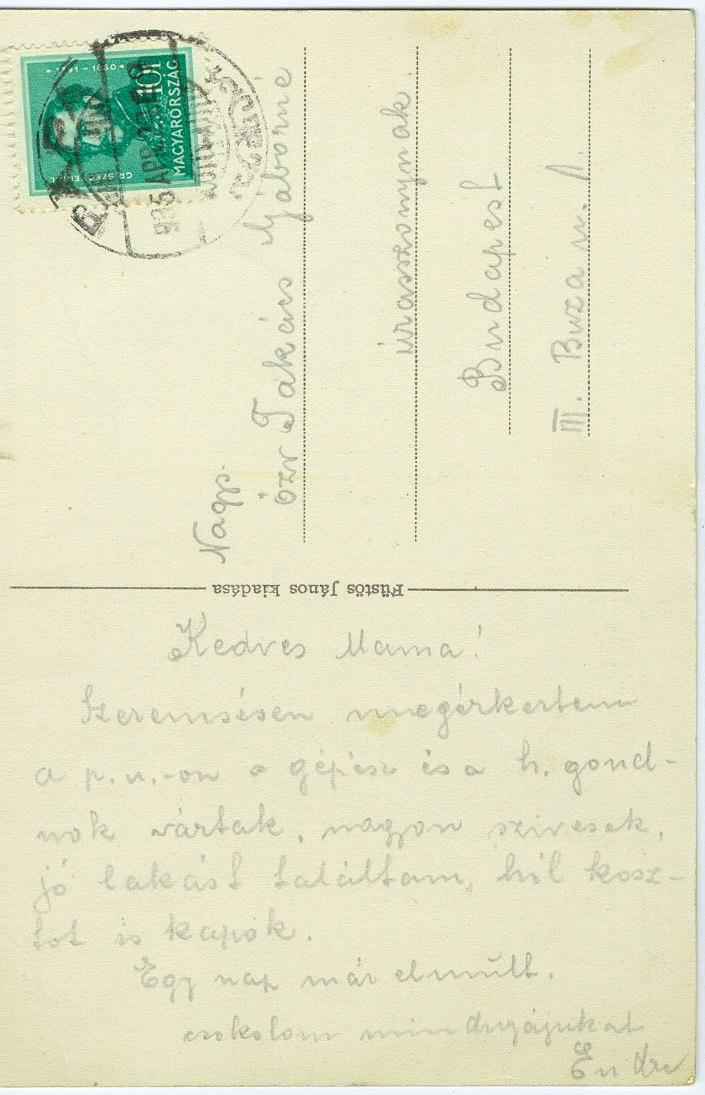 MAGYARORSZÁG
Nagys.
özv Takács Gáborné
úrasszonynak.
Budapest
III. Buza u. 1.
Füstös János kiadása
Kedves Mama!
Szerencsésen megérkeztem
a p. u.-on a gépész és a h. gond-
nok vártak, nagyon szivesek,
jó lakást találtam, hól kosz-
tot is kapok.
Egy nap már elmúlt.
csokolom mindnyájukat
Endre